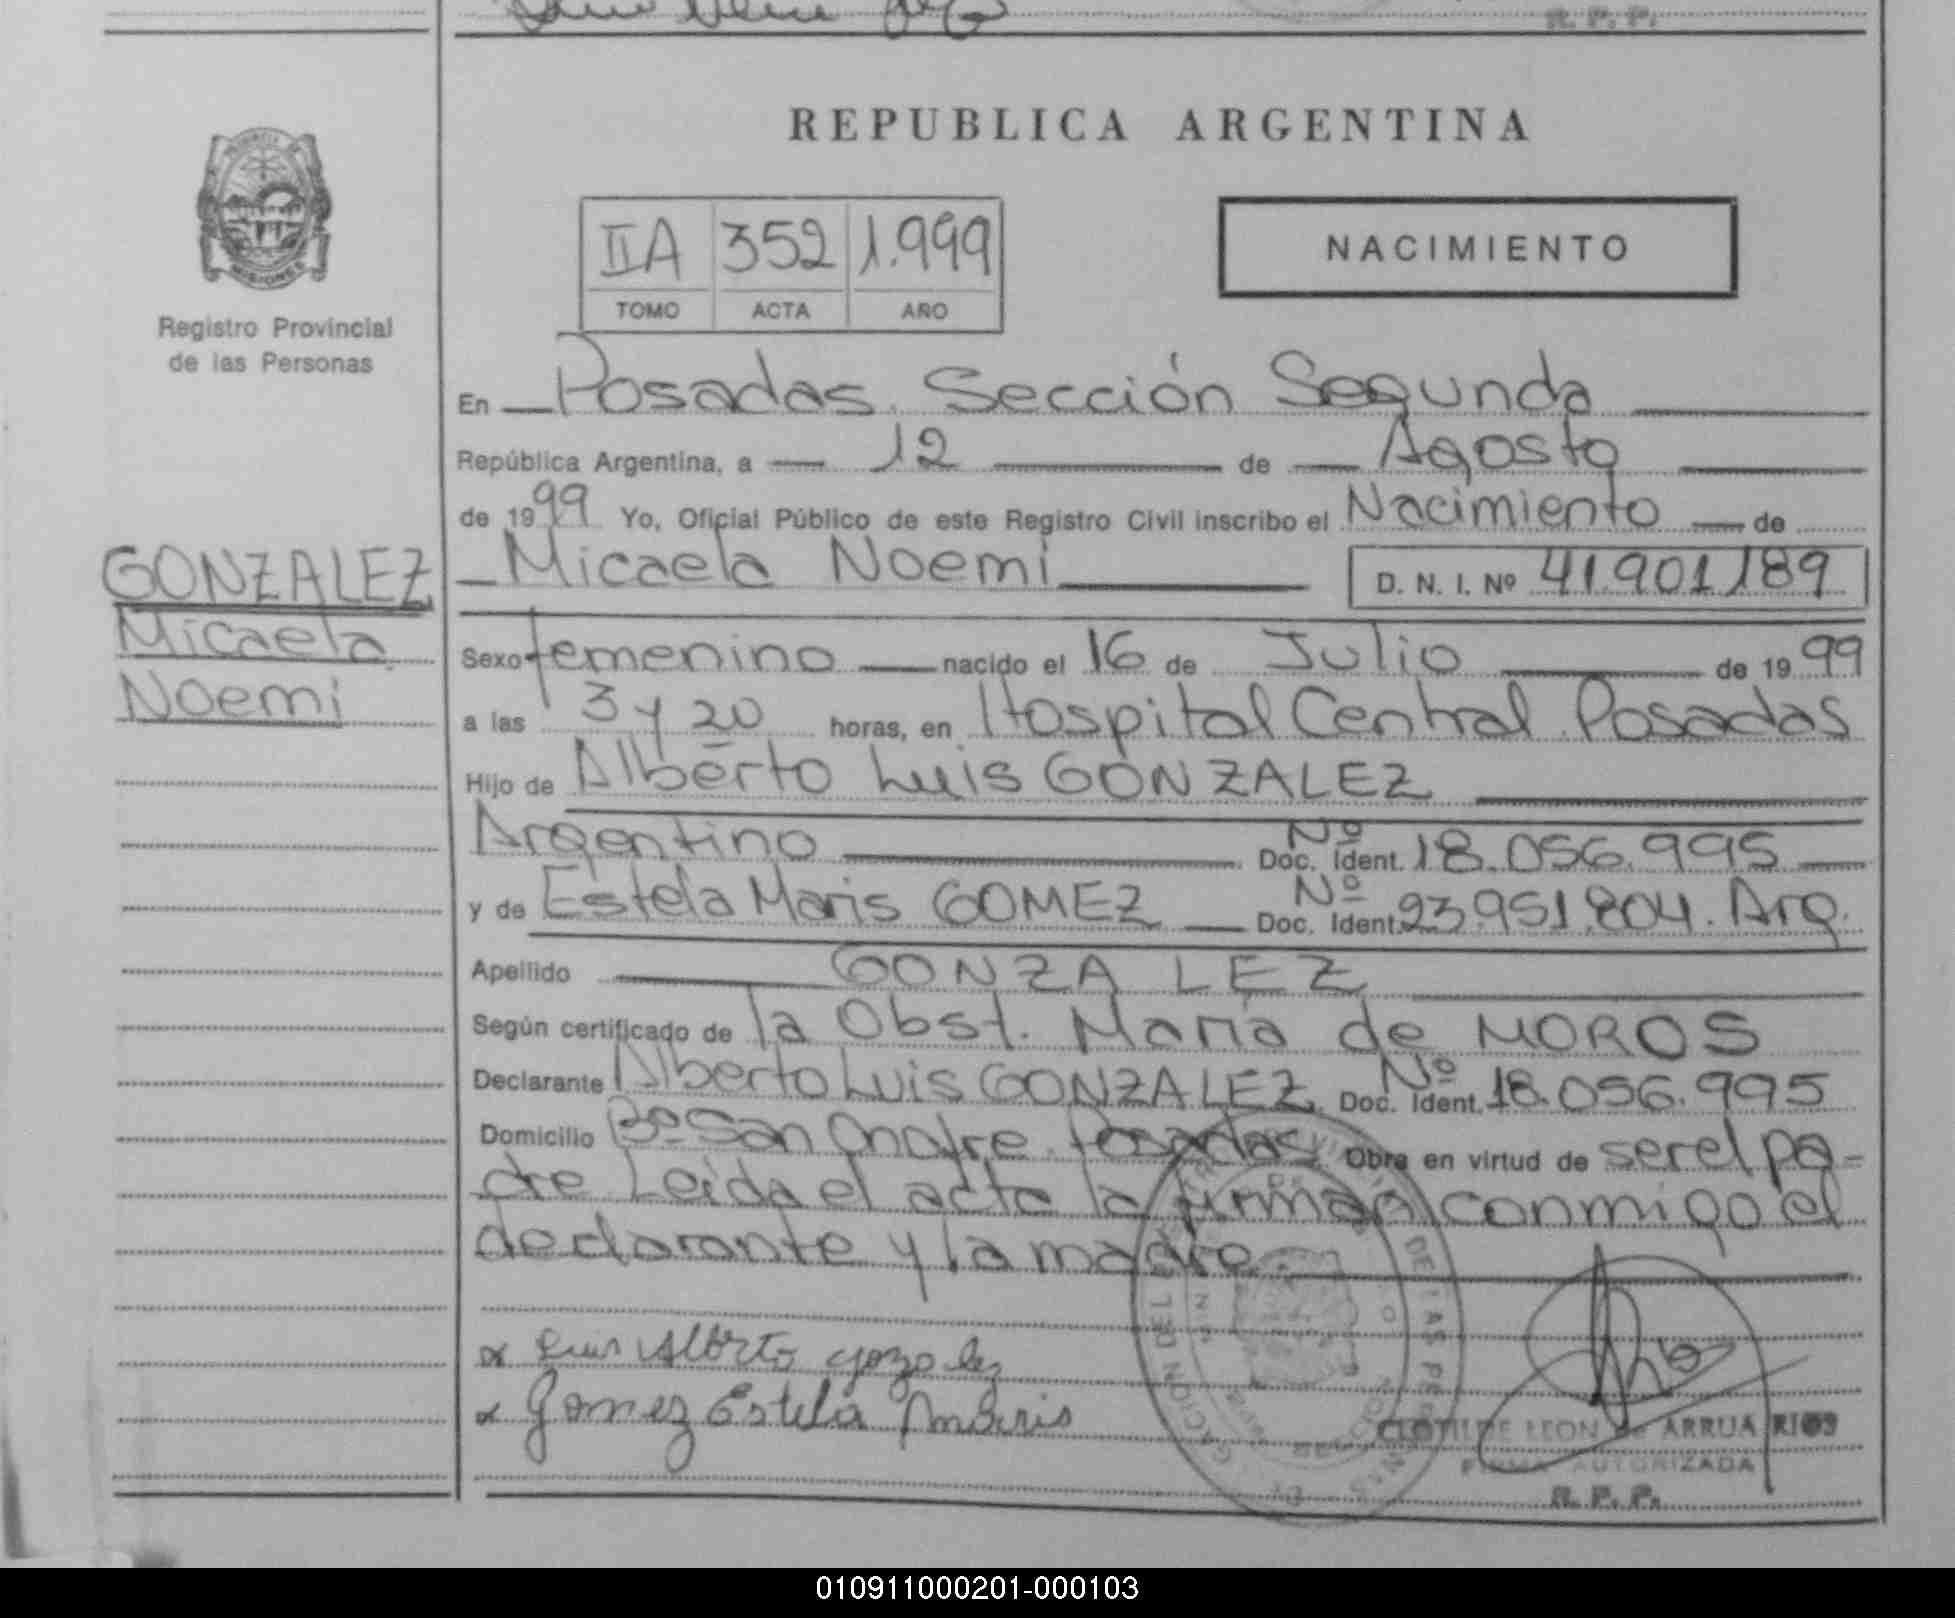 R. P. P.
REPUBLICA ARGENTINA
MISIONES
Registro Provincial
de las Personas
II A 352 1.999
TOMO ACTA AÑO
NACIMIENTO
En Posadas. Sección Segunda
República Argentina, a 12 de Agosto
de 1999 Yo, Oficial Público de este Registro Civil inscribo el Nacimiento de
GONZALEZ
Micaela
Noemi
Micaela Noemi D. N. I. Nº 41.901.189
Sexo femenino nacido el 16 de Julio de 1999
a las 3 y 20 horas, en Hospital Central. Posadas
Hijo de Alberto Luis GONZALEZ
Argentino Nº Doc. Ident. 18.056.995
y de Estela Maris GOMEZ Nº Doc. Ident. 23.951.804. Arg.
Apellido GONZALEZ
Según certificado de la Obst. Maria de MOROS
Declarante Alberto Luis GONZALEZ. Nº Doc. Ident. 18.056.995
Domicilio Bº San Onofre. Posadas Obra en virtud de ser el pa-
dre Leida el acta la firman conmigo el
declarante y la madre
Luis Alberto gozalez
Gomez Estela Maris
CLOTILDE LEON de ARRUA RIOS
FIRMA AUTORIZADA
R. P. P.
010911000201-000103